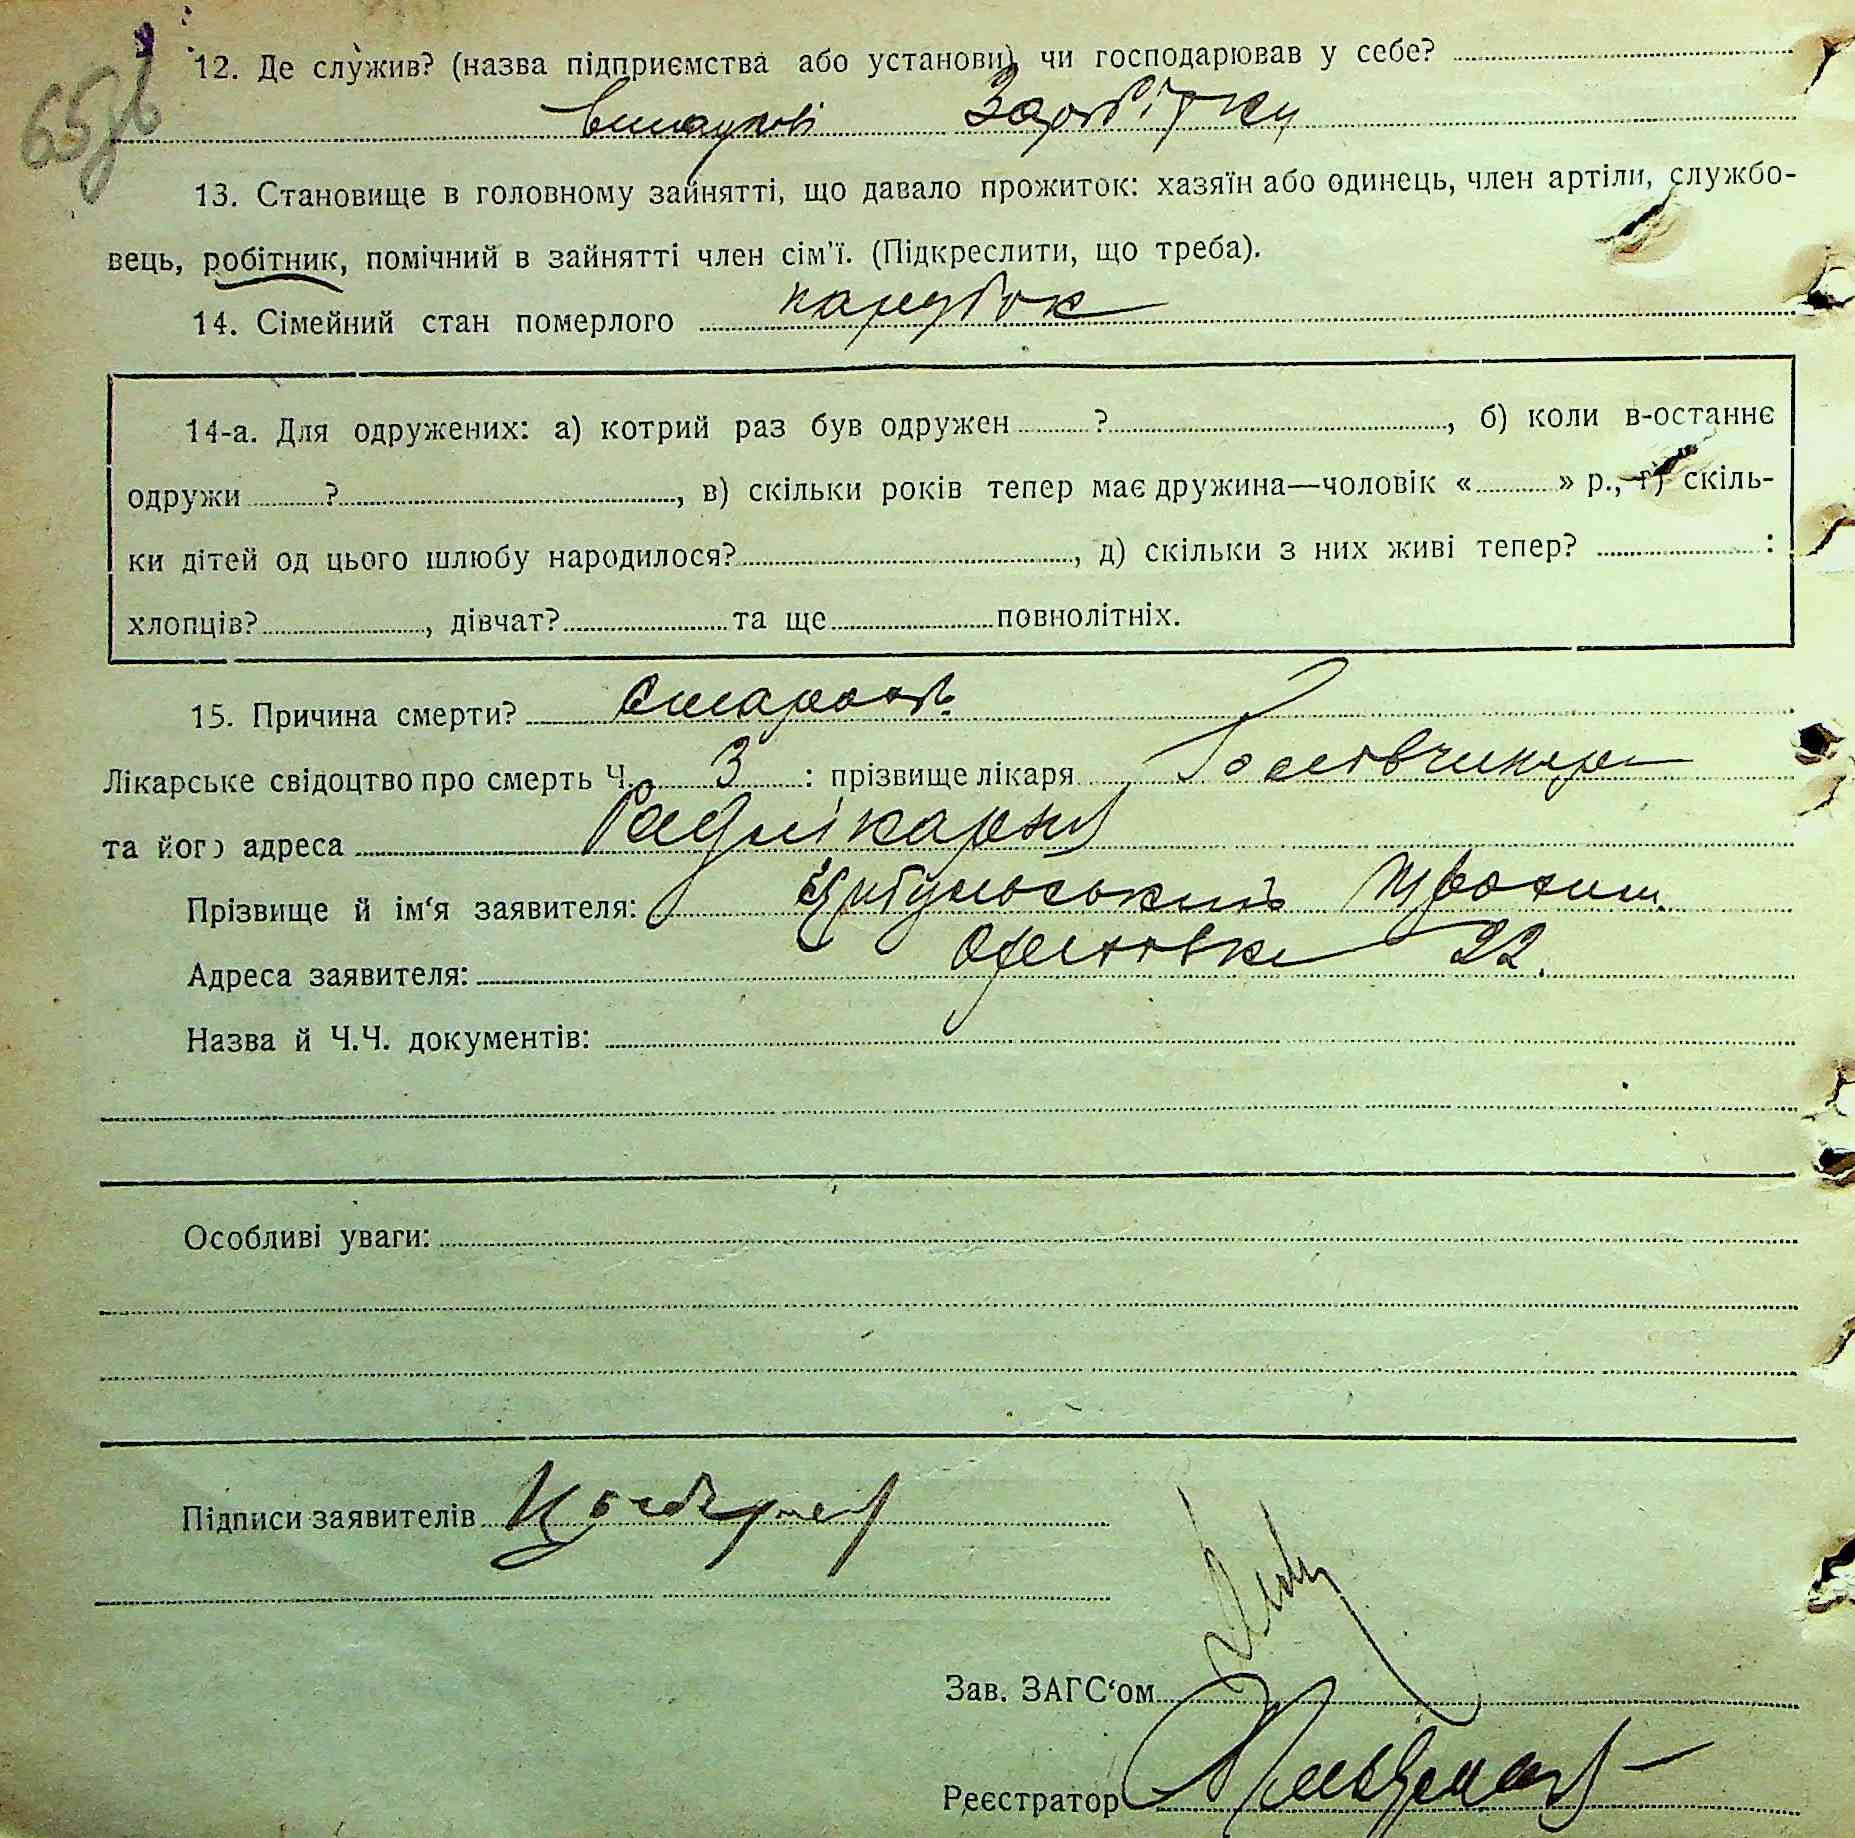 65зв
12. Де служив? (назва підприємства або установи) чи господарював у себе?
Випадкові Заробітки
13. Становище в головному зайнятті, що давало прожиток: хазяїн або одинець, член артіли, службо-
вець, робітник, помічний в зайнятті член сім'ї. (Підкреслити, що треба).
14. Сімейний стан померлого парубок
14-а. Для одружених: а) котрий раз був одружен ?, б) коли в-останнє
одружи ?, в) скільки років тепер має дружина—чоловік « » р., г) скіль-
ки дітей од цього шлюбу народилося?, д) скільки з них живі тепер? :
хлопців?, дівчат? та ще повнолітніх.
15. Причина смерти? Старость
Лікарське свідоцтво про смерть Ч. 3 : прізвище лікаря
та його адреса Радлікарня
Прізвище й ім'я заявителя:
Адреса заявителя: 22.
Назва й Ч.Ч. документів:
Особливі уваги:
Підписи заявителів
Зав. ЗАГС'ом
Реєстратор